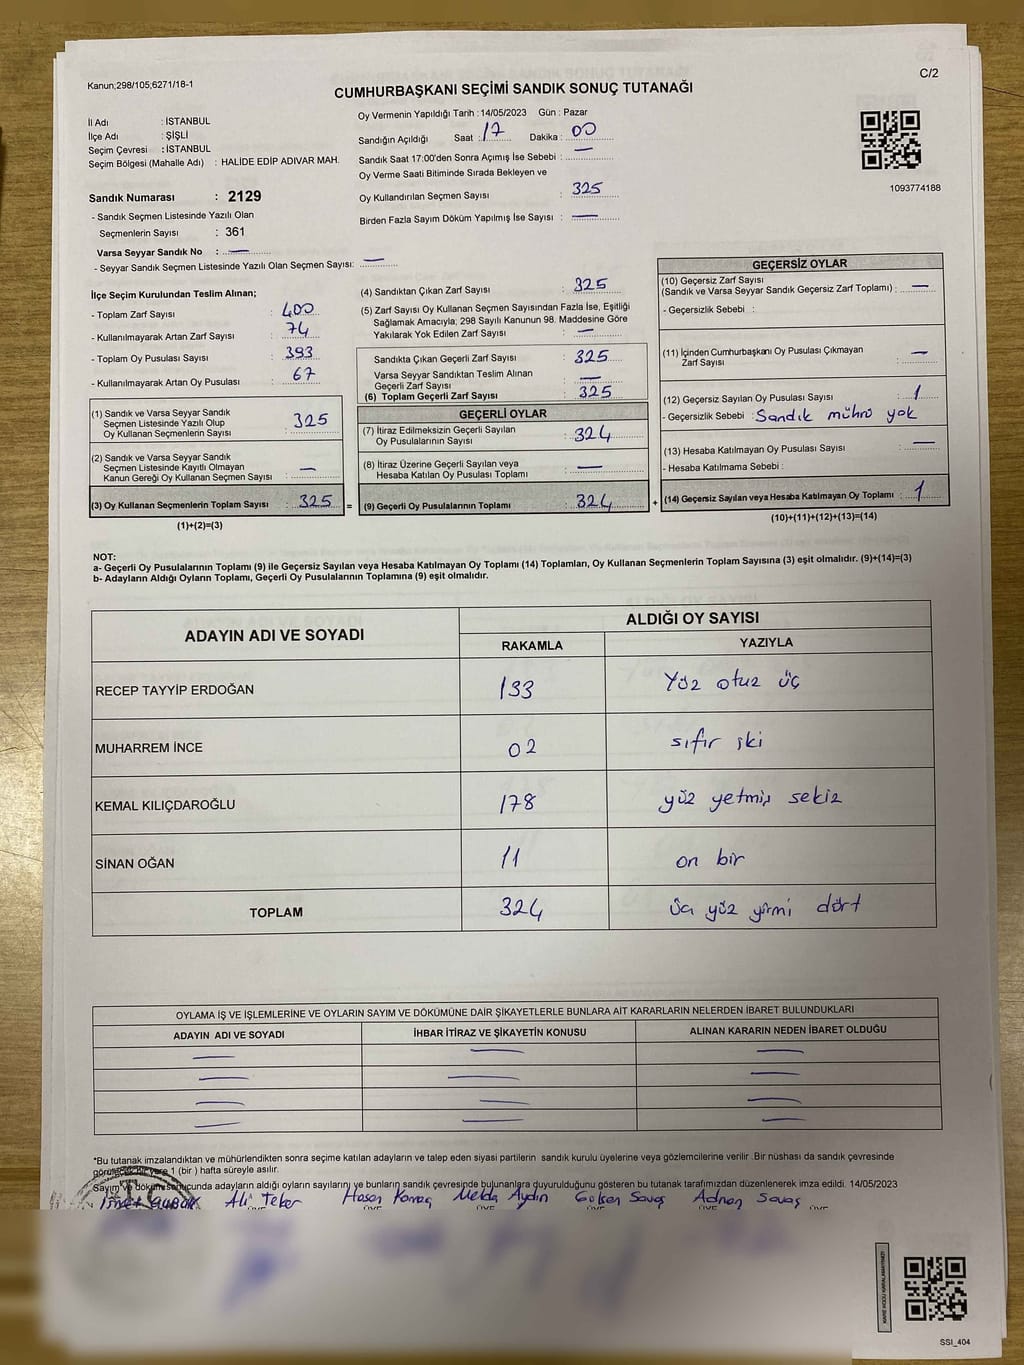 Kanun;298/105;6271/18-1
C/2
CUMHURBAŞKANI SEÇİMİ SANDIK SONUÇ TUTANAĞI
İl Adı : İSTANBUL
İlçe Adı : ŞİŞLİ
Seçim Çevresi : İSTANBUL
Seçim Bölgesi (Mahalle Adı) : HALİDE EDİP ADIVAR MAH.
Sandık Numarası : 2129
- Sandık Seçmen Listesinde Yazılı Olan
Seçmenlerin Sayısı : 361
Varsa Seyyar Sandık No : —
- Seyyar Sandık Seçmen Listesinde Yazılı Olan Seçmen Sayısı: —
Oy Vermenin Yapıldığı Tarih : 14/05/2023 Gün : Pazar
Sandığın Açıldığı Saat : 17 Dakika : 00
Sandık Saat 17:00'den Sonra Açımış İse Sebebi : —
Oy Verme Saati Bitiminde Sırada Bekleyen ve
Oy Kullandırılan Seçmen Sayısı : 325
Birden Fazla Sayım Döküm Yapılmış İse Sayısı : —
1093774188
İlçe Seçim Kurulundan Teslim Alınan;
- Toplam Zarf Sayısı : 400
- Kullanılmayarak Artan Zarf Sayısı : 74
- Toplam Oy Pusulası Sayısı : 393
- Kullanılmayarak Artan Oy Pusulası : 67
(1) Sandık ve Varsa Seyyar Sandık
Seçmen Listesinde Yazılı Olup
Oy Kullanan Seçmenlerin Sayısı : 325
(2) Sandık ve Varsa Seyyar Sandık
Seçmen Listesinde Kayıtlı Olmayan
Kanun Gereği Oy Kullanan Seçmen Sayısı : —
(3) Oy Kullanan Seçmenlerin Toplam Sayısı : 325
(1)+(2)=(3)
(4) Sandıktan Çıkan Zarf Sayısı : 325
(5) Zarf Sayısı Oy Kullanan Seçmen Sayısından Fazla İse, Eşitliği
Sağlamak Amacıyla; 298 Sayılı Kanunun 98. Maddesine Göre
Yakılarak Yok Edilen Zarf Sayısı : —
Sandıkta Çıkan Geçerli Zarf Sayısı : 325
Varsa Seyyar Sandıktan Teslim Alınan
Geçerli Zarf Sayısı : —
(6) Toplam Geçerli Zarf Sayısı : 325
GEÇERLİ OYLAR
(7) İtiraz Edilmeksizin Geçerli Sayılan
Oy Pusulalarının Sayısı : 324
(8) İtiraz Üzerine Geçerli Sayılan veya
Hesaba Katılan Oy Pusulası Toplamı : —
= (9) Geçerli Oy Pusulalarının Toplamı : 324 +
GEÇERSİZ OYLAR
(10) Geçersiz Zarf Sayısı
(Sandık ve Varsa Seyyar Sandık Geçersiz Zarf Toplamı) : —
- Geçersizlik Sebebi :
(11) İçinden Cumhurbaşkanı Oy Pusulası Çıkmayan
Zarf Sayısı : —
(12) Geçersiz Sayılan Oy Pusulası Sayısı : 1
- Geçersizlik Sebebi : Sandık mührü yok
(13) Hesaba Katılmayan Oy Pusulası Sayısı : —
- Hesaba Katılmama Sebebi :
(14) Geçersiz Sayılan veya Hesaba Katılmayan Oy Toplamı : 1
(10)+(11)+(12)+(13)=(14)
NOT:
a- Geçerli Oy Pusulalarının Toplamı (9) ile Geçersiz Sayılan veya Hesaba Katılmayan Oy Toplamı (14) Toplamları, Oy Kullanan Seçmenlerin Toplam Sayısına (3) eşit olmalıdır. (9)+(14)=(3)
b- Adayların Aldığı Oyların Toplamı, Geçerli Oy Pusulalarının Toplamına (9) eşit olmalıdır.
ADAYIN ADI VE SOYADI ALDIĞI OY SAYISI
RAKAMLA YAZIYLA
RECEP TAYYİP ERDOĞAN 133 Yüz otuz üç
MUHARREM İNCE 02 sıfır iki
KEMAL KILIÇDAROĞLU 178 yüz yetmiş sekiz
SİNAN OĞAN 11 on bir
TOPLAM 324 üç yüz yirmi dört
OYLAMA İŞ VE İŞLEMLERİNE VE OYLARIN SAYIM VE DÖKÜMÜNE DAİR ŞİKAYETLERLE BUNLARA AİT KARARLARIN NELERDEN İBARET BULUNDUKLARI
ADAYIN ADI VE SOYADI İHBAR İTİRAZ VE ŞİKAYETİN KONUSU ALINAN KARARIN NEDEN İBARET OLDUĞU
*Bu tutanak imzalandıktan ve mühürlendikten sonra seçime katılan adayların ve talep eden siyasi partilerin sandık kurulu üyelerine veya gözlemcilerine verilir .Bir nüshası da sandık çevresinde
görülecek bir yere 1 (bir ) hafta süreyle asılır.
Sayım ve döküm sonucunda adayların aldığı oyların sayılarını ve bunların sandık çevresinde bulunanlara duyurulduğunu gösteren bu tutanak tarafımızdan düzenlenerek imza edildi. 14/05/2023
Ali Teker Hasan Melda Aydın Gülşen Savaş Adnan Savaş
SSI_404